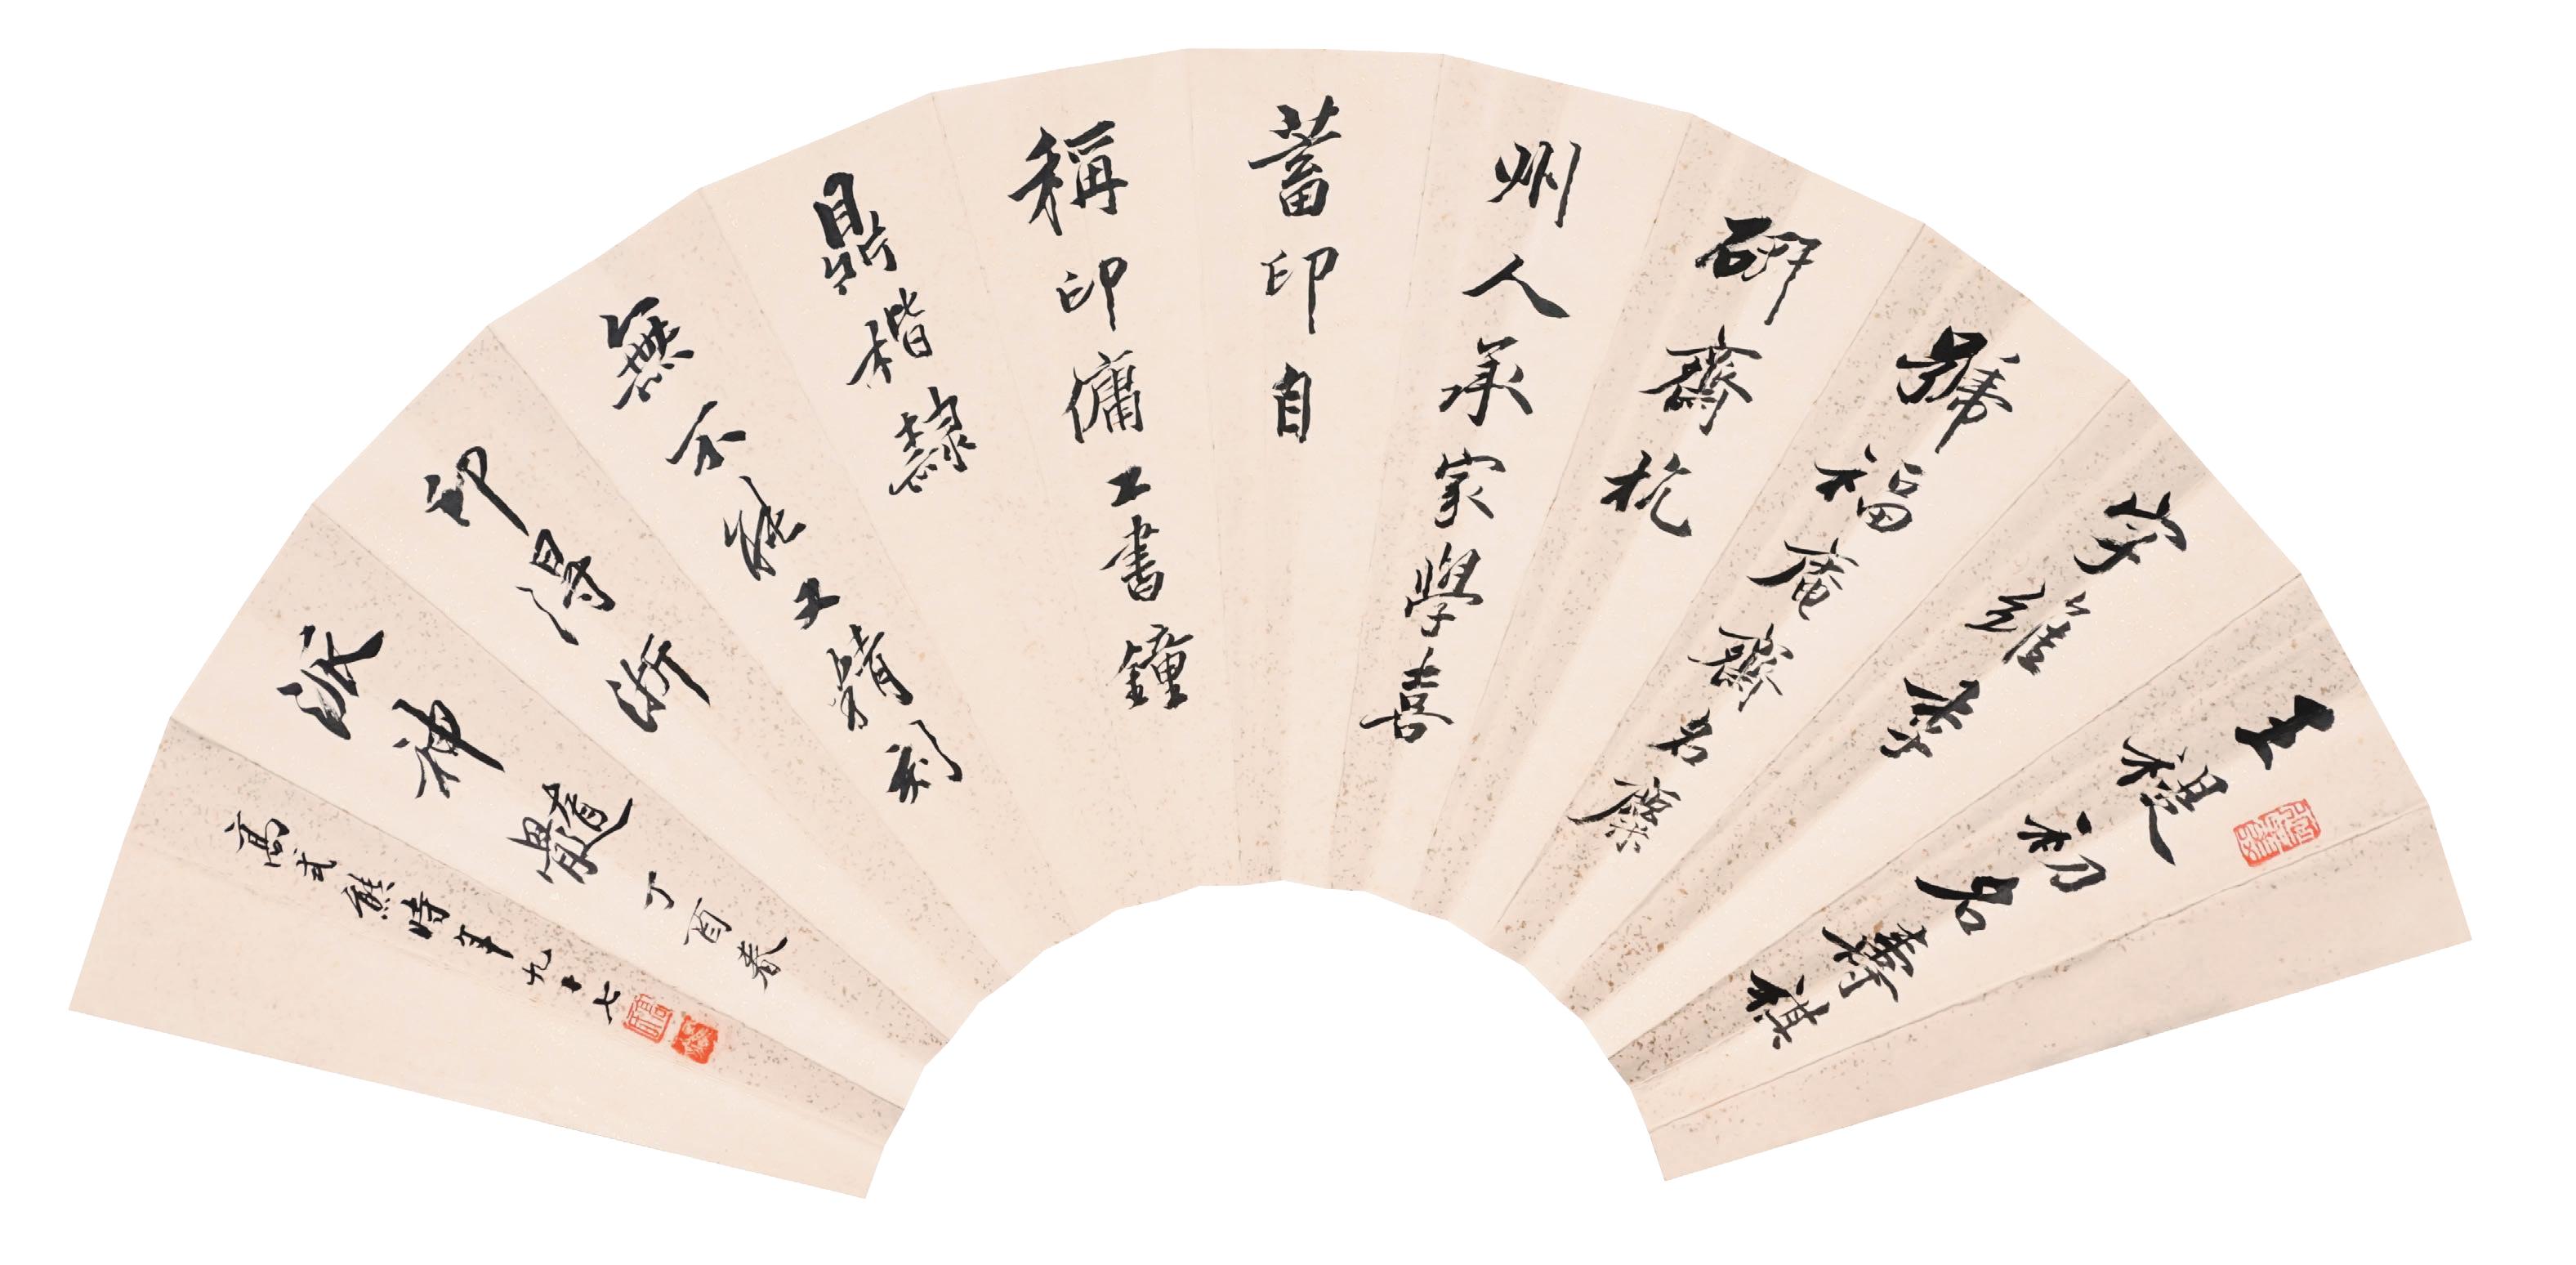 王禔初名壽祺
字維季
號福庵齋名麋
研齋杭
州人承家學喜
蓄印自
稱印傭工書鐘
鼎楷隸
無不能工精刻
印得浙
派神髓 丁酉春
高式熊時年九十七